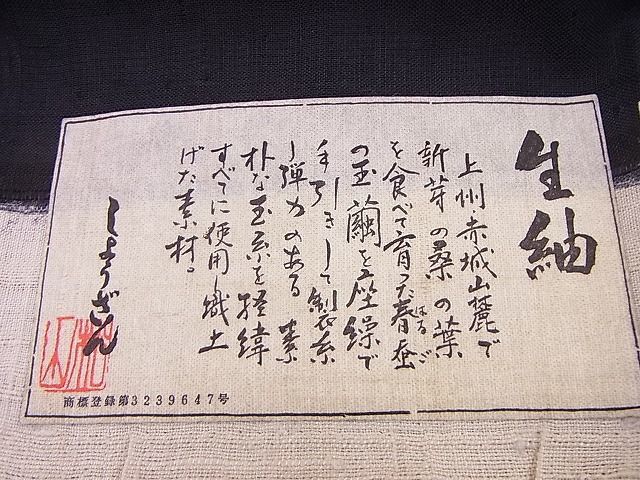 生紬
上州赤城山麓で
新芽の桑の葉
を食べて育った春蚕
はるご
の玉繭を座繰で
手引きして製糸
し弾力のある素
朴な玉糸を経緯
すべてに使用し織上
げた素材。
しょうざん
商標登録第3239647号